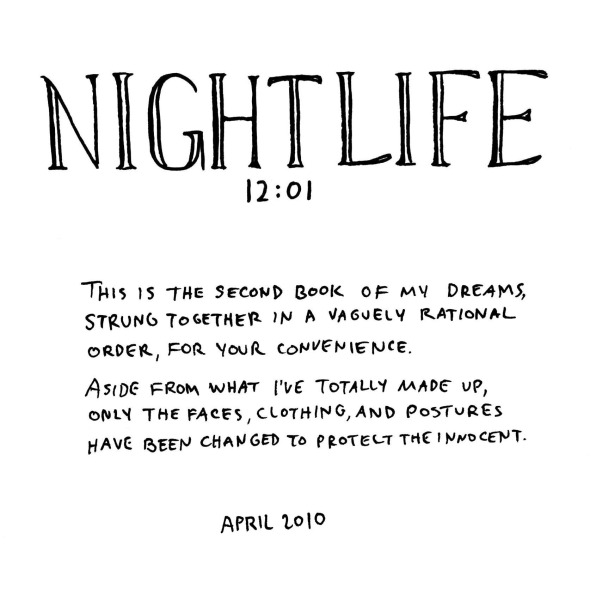 NIGHTLIFE
12:01
THIS IS THE SECOND BOOK OF MY DREAMS,
STRUNG TOGETHER IN A VAGUELY RATIONAL
ORDER, FOR YOUR CONVENIENCE.
ASIDE FROM WHAT I'VE TOTALLY MADE UP,
ONLY THE FACES, CLOTHING, AND POSTURES
HAVE BEEN CHANGED TO PROTECT THE INNOCENT.
APRIL 2010